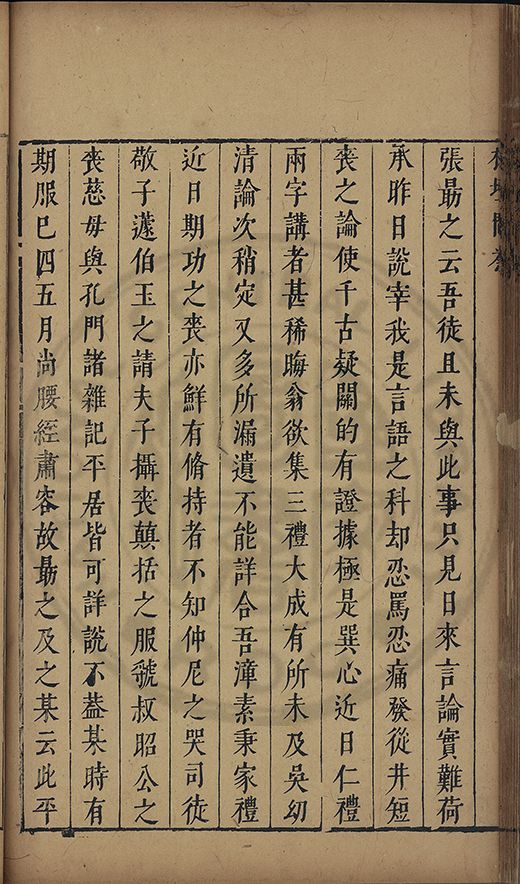 張勗之云吾徒且未與此事只見日來言論實難荷
承昨日說宰我是言語之科却忍罵忍痛發從井短
喪之論使千古疑關的有證據極是巽心近日仁禮
兩字講者甚稀晦翁欲集三禮大成有所未及吳幼
清論次稍定又多所漏遺不能詳合吾漳素秉家禮
近日期功之喪亦鮮有脩持者不知仲尼之哭司徒
敬子蘧伯玉之請夫子攝喪顛括之服虢叔昭公之
喪慈母與孔門諸雜記平居皆可詳說不葢某時有
期服巳四五月尚腰絰肅容故勗之及之某云此平